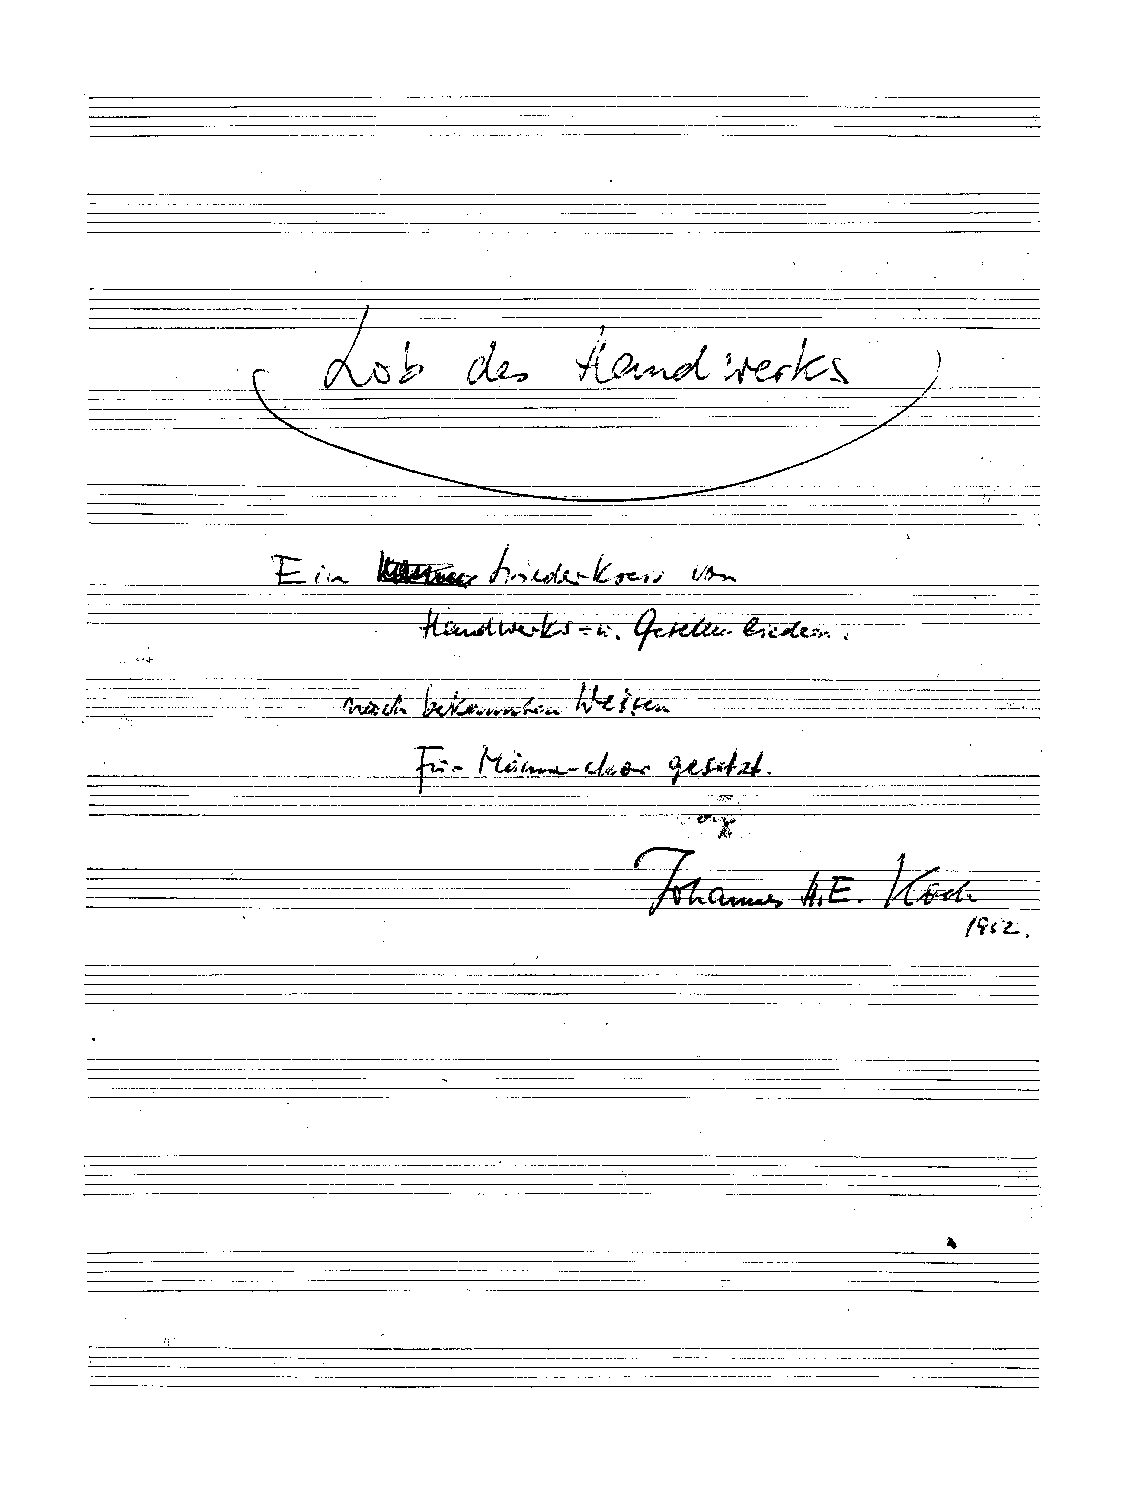 Lob des Handwerks
Ein Liederkreis von
Handwerks- u. Gesellenliedern.
nach bekannten Weisen
Für Männerchor gesetzt.
Johannes H.E. Koch
1952.